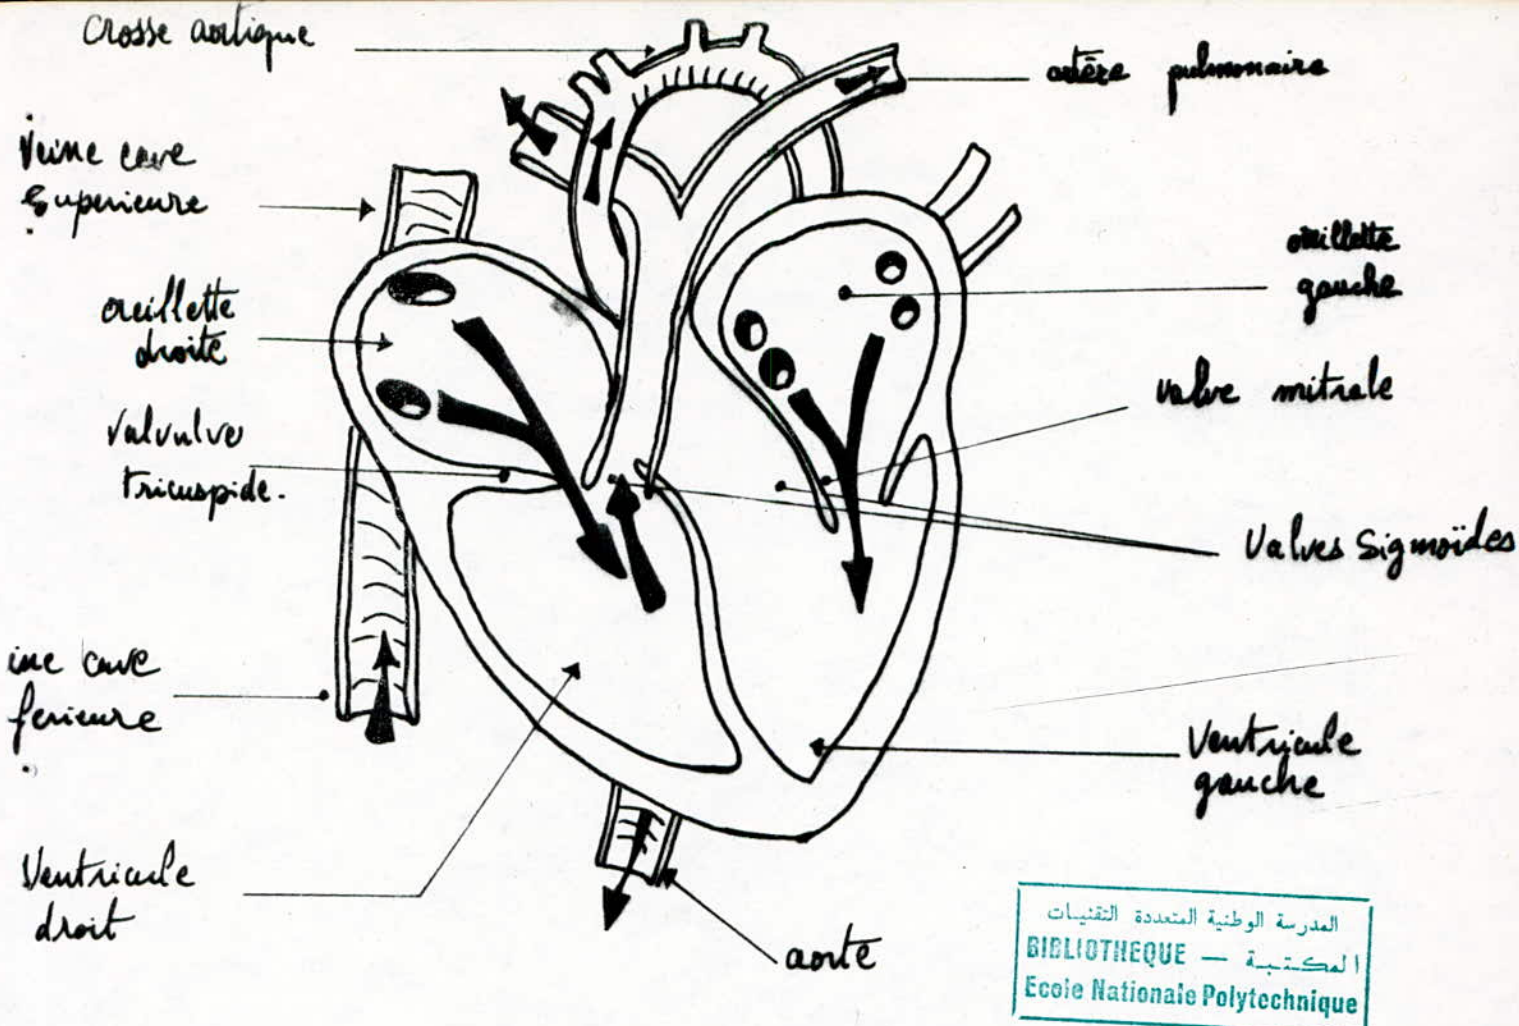 Crosse aortique
artère pulmonaire
Veine cave
Superieure
oreillette
gauche
oreillette
droite
valve mitrale
Valvulve
tricuspide.
Valves Sigmoïdes
ine cave
ferieure
Ventricule
gauche
Ventricule
droit
aorte
المدرسة الوطنية المتعددة التقنيات
BIBLIOTHEQUE — المكتبة
Ecole Nationale Polytechnique